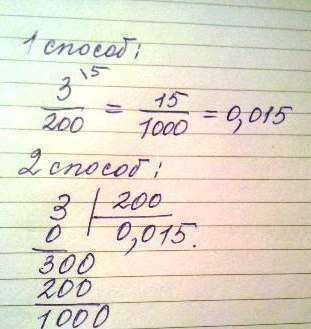 1 способ:
3\5/200 = 15/1000 = 0,015
2 способ:
3 | 200
0 | 0,015.
300
200
1000